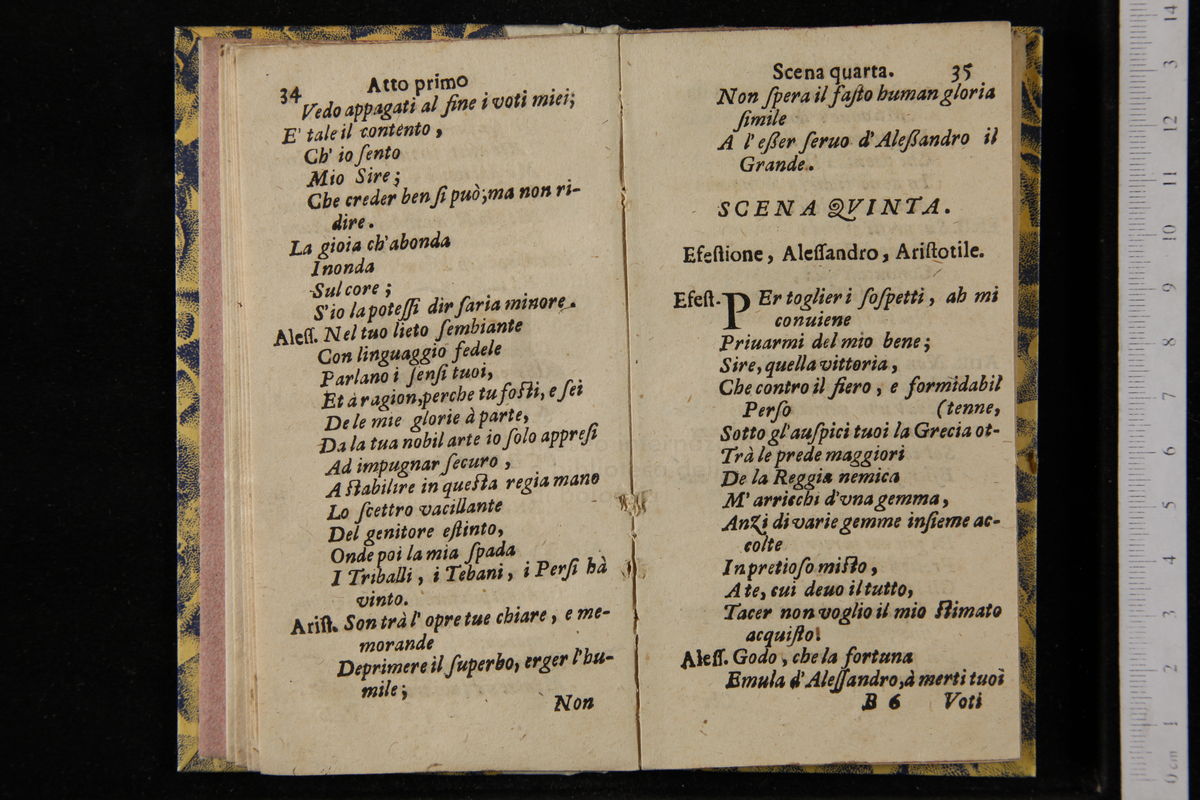 34 Atto primo
Vedo appagati al fine i voti miei;
E' tale il contento,
Ch' io ſento
Mio Sire;
Che creder ben ſi può; ma non ri-
dire.
La gioia ch'abonda
Inonda
Sul core;
S'io la poteſſi dir ſaria minore.
Aleſſ. Nel tuo lieto ſembiante
Con linguaggio fedele
Parlano i ſenſi tuoi,
Et à ragion, perche tu foſti, e ſei
De le mie glorie à parte,
Da la tua nobil arte io ſolo appreſi
Ad impugnar ſecuro,
A ſtabilire in queſta regia mano
Lo ſcettro vacillante
Del genitore eſtinto,
Onde poi la mia ſpada
I Triballi, i Tebani, i Perſi hà
vinto.
Ariſt. Son trà l' opre tue chiare, e me-
morande
Deprimere il ſuperbo, erger l'hu-
mile;
Non
Scena quarta. 35
Non ſpera il faſto human gloria
ſimile
A l'eßer ſeruo d'Aleßandro il
Grande.
SCENA QVINTA.
Efeſtione, Aleſſandro, Ariſtotile.
Efeſt. PEr toglier i ſoſpetti, ah mi
conuiene
Priuarmi del mio bene;
Sire, quella vittoria,
Che contro il fiero, e formidabil
Perſo (tenne,
Sotto gl'auſpici tuoi la Grecia ot-
Trà le prede maggiori
De la Reggia nemica
M' arricchi d'vna gemma,
Anzi di varie gemme inſieme ac-
colte
In pretioſo miſto,
A te, cui deuo il tutto,
Tacer non voglio il mio ſtimato
acquiſto!
Aleſſ. Godo, che la fortuna
Emula d'Aleſſandro, à merti tuoi
B 6 Voti
14
3
12
11
10
9
8
7
6
5
4
3
2
1
0 cm